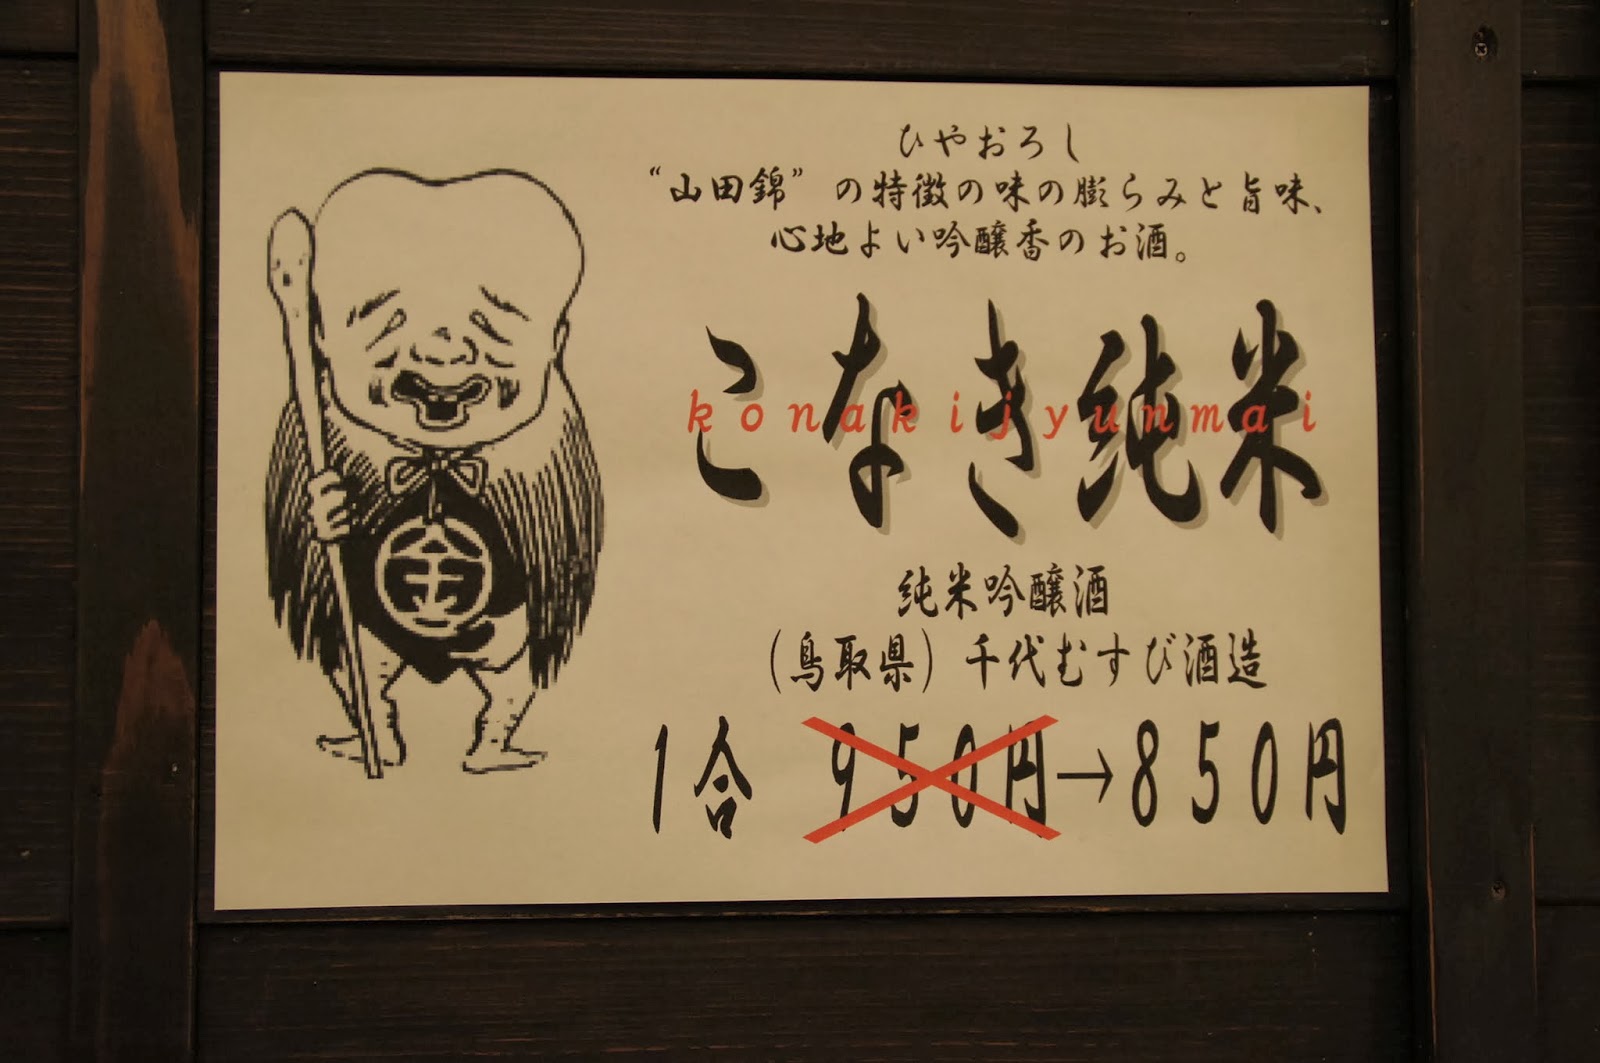 ひやおろし
“山田錦”の特徴の味の膨らみと旨味、
心地よい吟醸香のお酒。
こなき純米
konakijyunmai
純米吟醸酒
（鳥取県）千代むすび酒造
1合 950円→850円
金